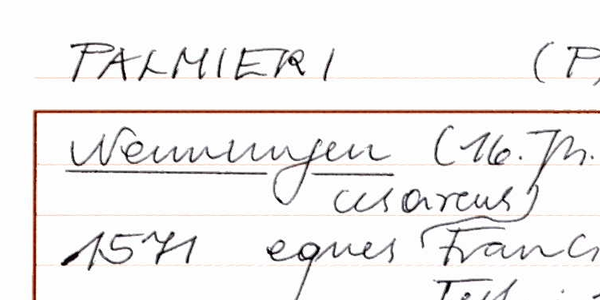 PALMIERI (P
Nennungen (16. Jh.
cesareus)
1571 eques Franc